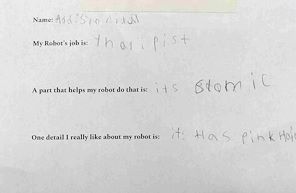 Name: Addison
My Robot's job is: tharipist
A part that helps my robot do that is: its stomic
One detail I really like about my robot is: it Has pink